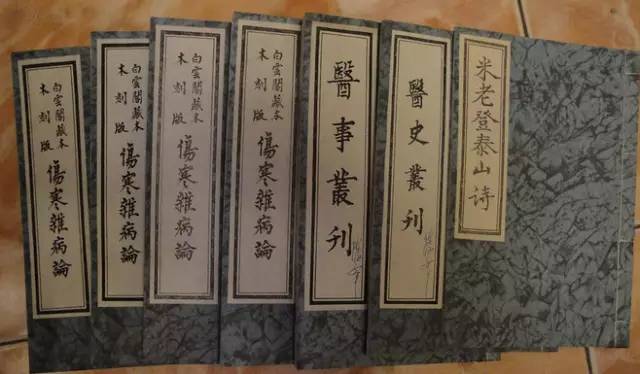 米老登泰山诗
醫史叢刊
醫事叢刊
白雲閣藏本
木刻版
傷寒雜病論
白雲閣藏本
木刻版
傷寒雜病論
白雲閣藏本
木刻版
傷寒雜病論
白雲閣藏本
木刻版
傷寒雜病論